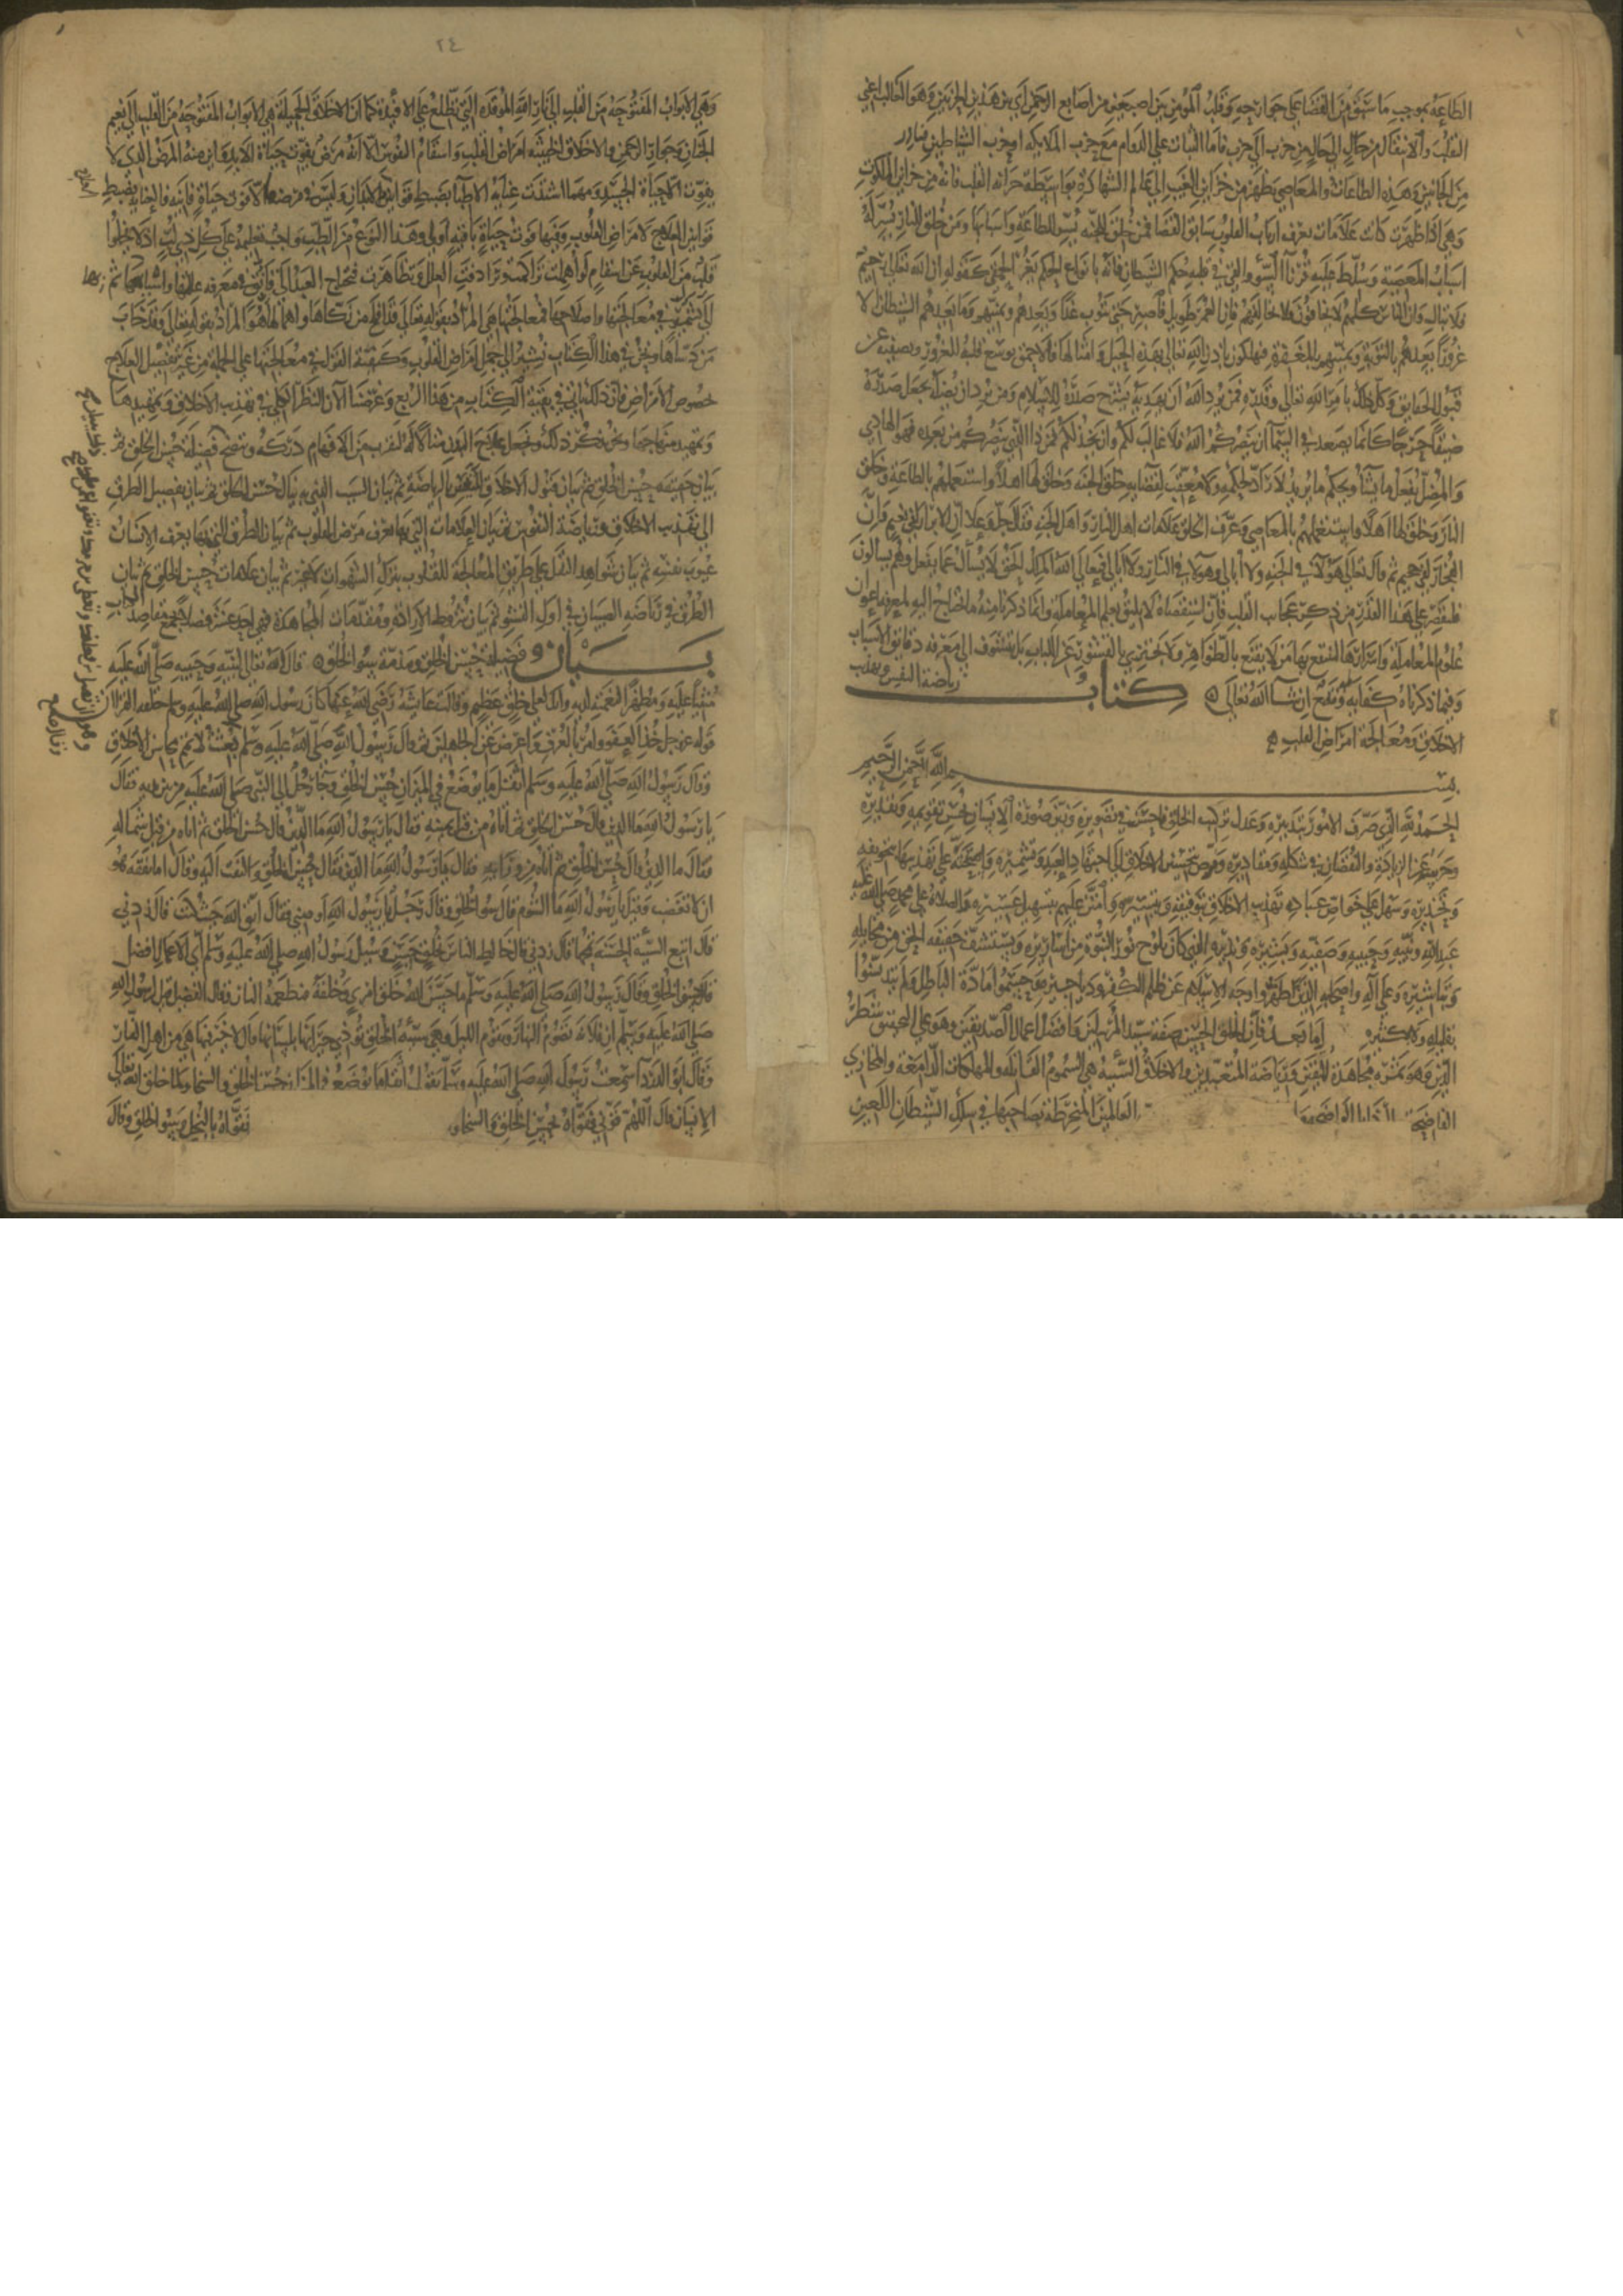 الطاعة بموجب ما سبق من القضا على جوارحه وقلب المومن بين اصبعين من اصابع الرحمن اي بين هذين الجزين وهو الغالب اعني
التقلب والانتقال من حال الى حال من حزب الى حزب فاما الثبات على الدوام مع حزب الملايكه او حزب الشياطين فنادر
من الجانبين وهذه الطاعات والمعاصي تظهر من خزاين الغيب الى عالم الشهادة بواسطة خزانه القلب فانه من خزاين الملكوت
وهي اذا ظهرت كانت علامات يعرف ارباب القلوب سابق القضا فمن خلق للجنه يسر للطاعة واسبابها ومن خلق للنار يسر له
اسباب المعصية وسلط عليه قرنا السوء والقى في قلبه حكم الشيطان فانه بانواع الحكم يغر الحمقى كقوله ان الله تعالى رحيم
ولا تبال وان الناس كلهم لا يخافون فلا تخالفهم فان العمر طويل فاصبر حتى تتوب غدا يعدهم ويمنيهم وما يعدهم الشيطان الا
غرورا يعدهم بالتوبة ويمنيهم بالمغفرة فيهلكون باذن الله تعالى بهذه الحيل وامثالها فالاحمق يوسع قلبه للغرور ويضيقه عن
قبول الحقايق وكل ذلك بامر الله تعالى وقدره فمن يرد الله ان يهديه يشرح صدره للاسلام ومن يرد ان يضله يجعل صدره
ضيقا حرجا كانما يصعد في السما ان ينصركم الله فلا غالب لكم وان يخذلكم فمن ذا الذي ينصركم من بعده فهو الهادي
والمضل يفعل ما يشا ويحكم ما يريد لا راد لحكمه ولا معقب لقضايه خلق الجنه وخلق لها اهلا واستعملهم بالطاعة وخلق
النار وخلق لها اهلا فاستعملهم بالمعاصي وعرف الخلق علامات اهل النار واهل الجنه فقال جل وعلا ان الابرار لفي نعيم وان
الفجار لفي جحيم ثم قال تعالى هؤلاء في الجنه ولا ابالي وهؤلاء في النار ولا ابالي فتعالى الله الملك الحق لا يسال عما يفعل وهم يسالون
فلنقتصر على هذا القدر من ذكر عجايب القلب فان استقصاه لا يليق بعلم المعامله وانما ذكرنا منه ما يحتاج اليه لمعرفه اغوار
علوم المعامله واسرارها لينتفع بها من لا يقنع بالظواهر ولا يجتزي بالقشور عن اللباب بل يتشوف الى معرفه دقايق الاسباب
وفيما ذكرناه كفايه ومقنع ان شا الله تعالى كتاب رياضة النفس وتهذيب
الاخلاق ومعالجة امراض القلب
بسم الله الرحمن الرحيم
الحمد لله الذي صرف الامور بتدبيره وعدل تركيب الخلق فاحسن في تصويره وزين صورة الانسان بحسن تقويمه وتقديره
وحرسه من الزيادة والنقصان في شكله ومقاديره وفوض تحسين الاخلاق الى اجتهاد العبد وتشميره واستحثه على تهذيبها بتخويفه
وتحذيره وسهل على خواص عباده تهذيب الاخلاق بتوفيقه وتيسيره وامتن عليهم بتسهيل عسيره والصلاة على محمد صلى الله عليه
عبد الله ونبيه وحبيبه وصفيه وبشيره ونذيره الذي كان يلوح نور النبوة من اساريره ويستشف حقيقه الحق من مخايله
وتباشيره وعلى آله واصحابه الذين طهروا وجه الاسلام عن ظلم الكفر ودياجيره وحسموا مادة الباطل فلم يتدنسوا
بقليله ولا بكثيره اما بعد فان الخلق الحسن صفة سيد المرسلين وافضل اعمال الصديقين وهو على التحقيق شطر
الدين وهو ثمرة مجاهدة المتقين ورياضة المتعبدين والاخلاق السيئة هي السموم القاتله والمهلكات الدامغة والمخازي
الفاضحة العالمين المنخرطة بصاحبها في سلك الشيطان اللعين
٢٤
وهي الابواب المفتوحة من القلب الى نار الله الموقده التي تطلع على الافيدة كما ان الاخلاق الجميلة هي الابواب المفتوحة من القلب الى نعيم
الجنان وجوار الرحمن والاخلاق الخبيثه امراض القلب واسقام النفوس الا انه مرض يفوت حياة الابد واين منه المرض الذي لا
يفوت الا حياة الجسد ومهما اشتدت عناية الاطبا بضبط قوانين العلاج للابدان وليس في مرضها الا فوت حياة فانيه فالعنايه بضبط
قوانين العلاج لامراض القلوب وفيها فوت حياة باقيه اولى وهذا النوع من الطب واجب تعلمه على كل ذي لب اذ لا يخلوا
قلب من القلوب عن اسقام لو اهملت تراكمت وترادفت العلل وتظاهرت فيحتاج العبد الى تانق في معرفه عللها واسبابها ثم
الى تشمير في معالجتها واصلاحها فمعالجتها هي المراد بقوله تعالى قد افلح من زكاها واهمالها هو المراد بقوله تعالى وقد خاب
من دساها ونحن في هذا الكتاب نشير الى جمل امراض القلوب وكيفية القول في معالجتها على الجمله من غير تفصيل لعلاج
خصوص الامراض فان ذلك ياتي في بقية الكتاب من هذا الربع وغرضنا الآن النظر الكلي في تهذيب الاخلاق وتمهيد
وتمهيد منهاجها ونحن نذكر ذلك ونجعل علاج البدن مثالا له ليقرب من الافهام دركه ويتضح فضيله حسن الخلق ثم
بيان حقيقه حسن الخلق ثم بيان قبول الاخلاق للتغير بالرياضة ثم بيان السبب الذي به ينال حسن الخلق ثم بيان تفصيل الطرق
الى تهذيب الاخلاق ورياضة النفوس ثم بيان العلامات التي بها يعرف مرض القلوب ثم بيان الطرق التي بها يعرف الانسان
عيوب نفسه ثم بيان شواهد النقل على طريق المعالجة للقلوب بترك الشهوات لا غير ثم بيان علامات حسن الخلق ثم بيان
الطرق في رياضه الصبيان في اول النشو ثم بيان شروط الارادة ومقدمات المجاهدة فهي احد عشر فصلا يجمع مقاصد
بيان فضيلة حسن الخلق ومذمة سوء الخلق قال الله تعالى لنبيه وحبيبه صلى الله عليه
مثنيا عليه ومظهرا نعمته لديه وانك لعلى خلق عظيم وقالت عايشه رضي الله عنها كان رسول الله صلى الله عليه وسلم خلقه القران
قوله عز وجل خذ العفو وامر بالعرف واعرض عن الجاهلين ثم قال رسول الله صلى الله عليه وسلم بعثت لاتمم محاسن الاخلاق
وقال رسول الله صلى الله عليه وسلم اثقل ما يوضع في الميزان حسن الخلق وجا رجل الى النبي صلى الله عليه من بين يديه فقال
يا رسول الله ما الدين قال حسن الخلق ثم اتاه من قبل يمينه فقال يا رسول الله ما الدين قال حسن الخلق ثم اتاه من قبل شماله
فقال ما الدين قال حسن الخلق ثم اتاه من ورايه فقال يا رسول الله ما الدين فقال حسن الخلق والتفت اليه وقال اما تفقه هو
ان لا تغضب وقيل يا رسول الله ما الشوم قال سوء الخلق وقال رجل يا رسول الله اوصني فقال اتق الله حيث كنت قال زدني
قال اتبع السيئة الحسنة تمحها قال زدني قال خالط الناس بخلق حسن وسيل رسول الله صلى الله عليه وسلم اي الاعمال افضل
قال حسن الخلق وقال رسول الله صلى الله عليه وسلم ما حسن الله خلق امري وخلقه فتطعمه النار وقال الفضيل قيل لرسول الله
صلى الله عليه وسلم ان فلانة تصوم النهار وتقوم الليل وهي سيئة الخلق توذي جيرانها بلسانها قال لا خير فيها هي من اهل النار
وقال ابو الدردا سمعت رسول الله صلى الله عليه وسلم يقول اول ما يوضع في الميزان حسن الخلق والسخا ولما خلق الله تعالى
الايمان قال اللهم قوني فقواه بحسن الخلق والسخاء فقواه بالبخل وسوء الخلق وقال